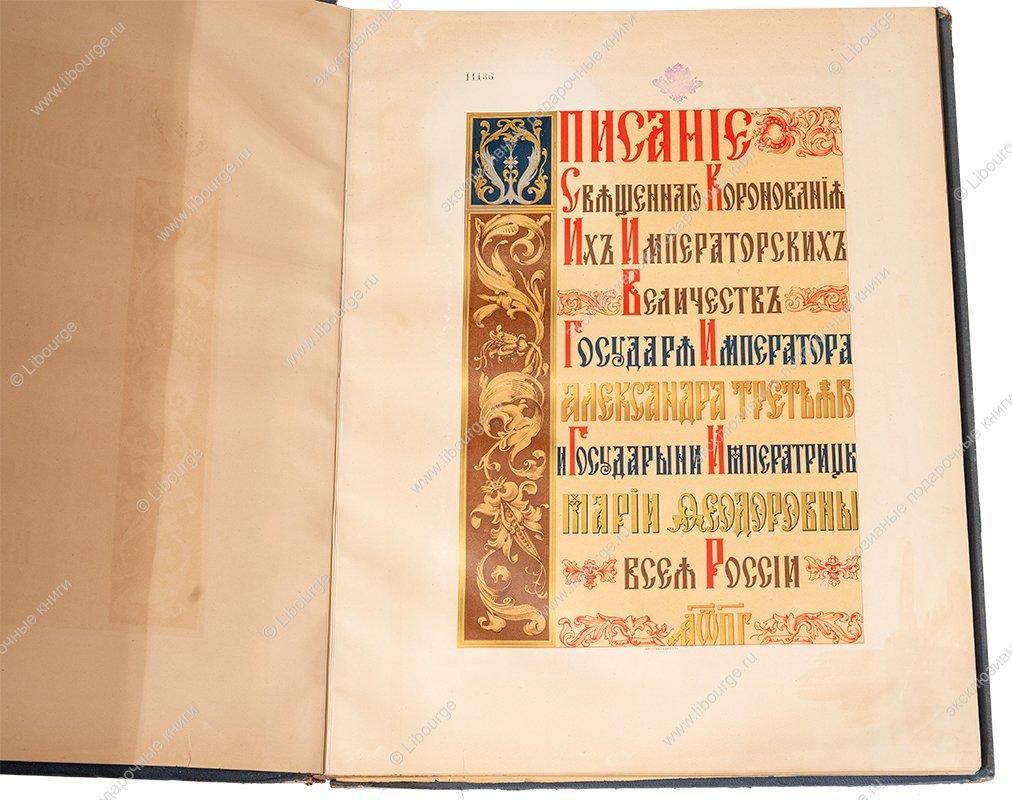 ОПИСАНІЕ
СВѦЩЕННАГО КОРОНОВАНІѦ
ИХЪ ИМПЕРАТОРСКИХЪ
ВЕЛИЧЕСТВЪ
ГОСУДАРѦ ИМПЕРАТОРА
АЛЕКСАНДРА ТРЕТЬѦГО
И ГОСУДАРЫНИ ИМПЕРАТРИЦЫ
МАРІИ ѲЕОДОРОВНЫ
ВСЕѦ РОССІИ
АѾПГ
www.libourge.ru
© Libourge
эксклюзивные подарочные книги